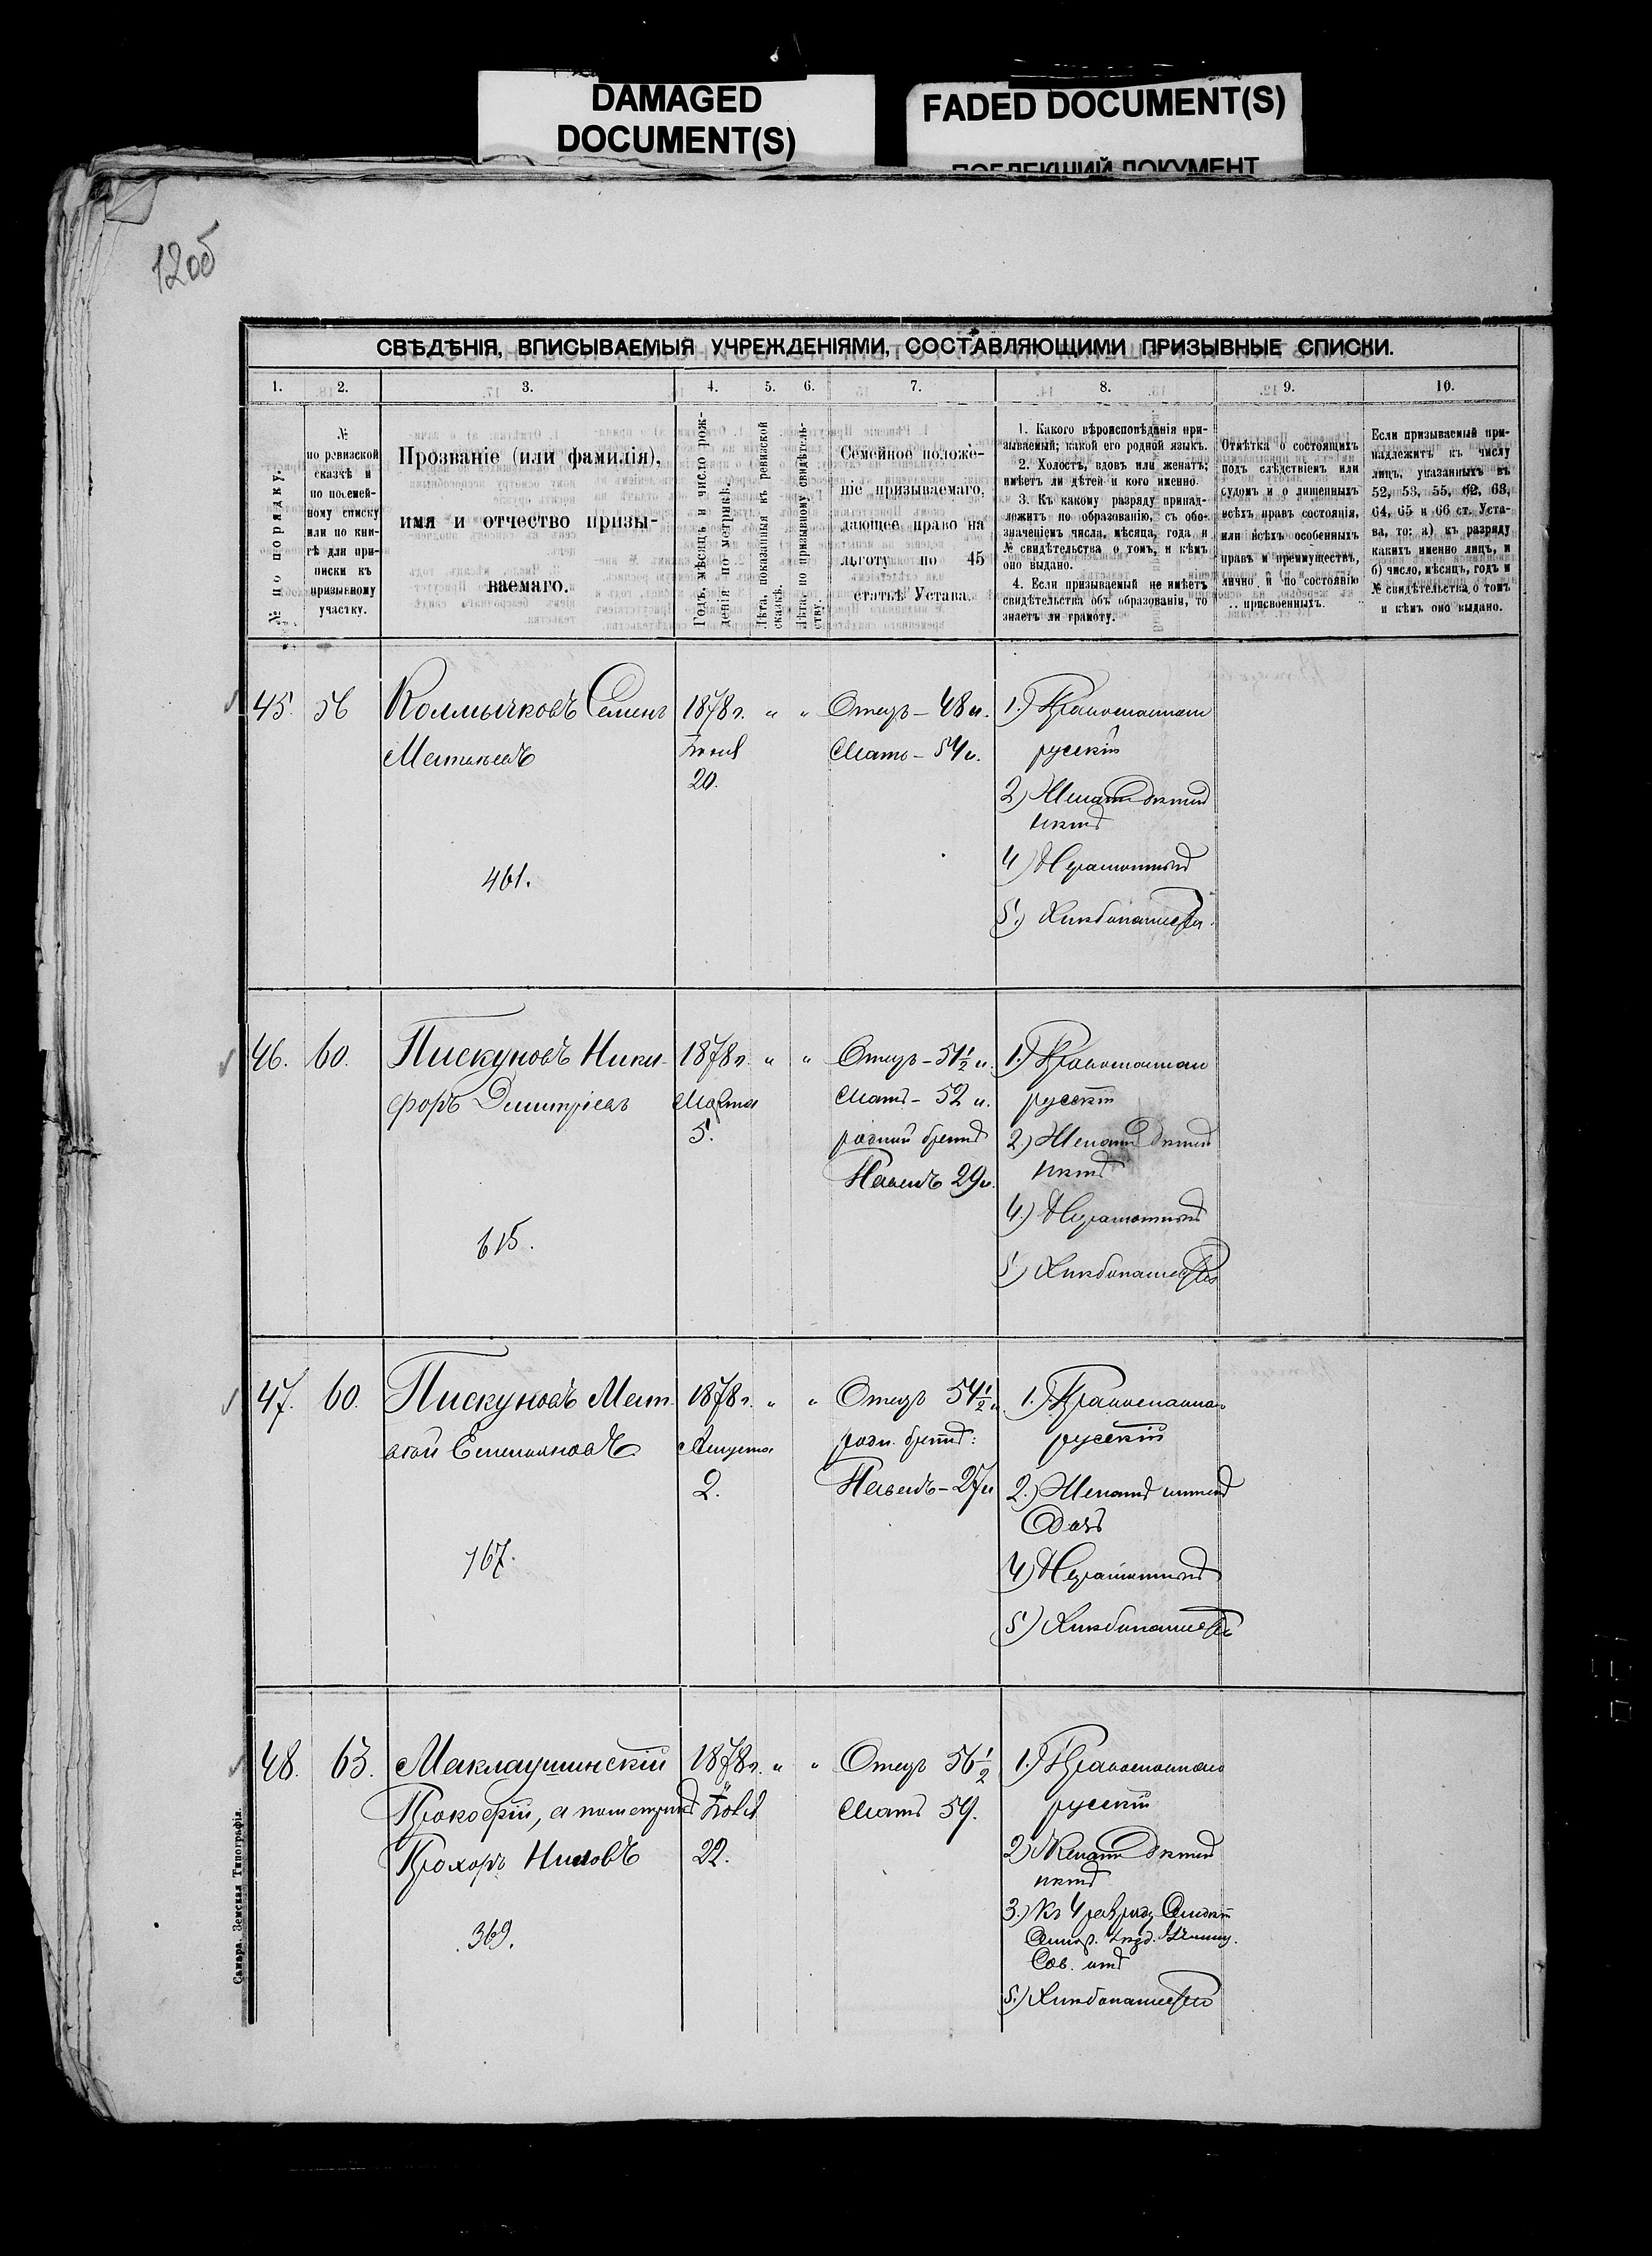 DAMAGED
DOCUMENT(S)
FADED DOCUMENT(S)
ПОБЛЕКШИЙ ДОКУМЕНТ
12об
СВѢДѢНІЯ, ВПИСЫВАЕМЫЯ УЧРЕЖДЕНІЯМИ, СОСТАВЛЯЮЩИМИ ПРИЗЫВНЫЕ СПИСКИ.
1. 2. 3. 4. 5. 6. 7. 8. 9. 10.
№ по порядку.
№
по ревизской
сказкѣ и
по посемей-
ному списку
или по кни-
гѣ для при-
писки къ
призывному
участку.
Прозваніе (или фамилія),
имя и отчество призы-
ваемаго.
Годъ, мѣсяцъ и число рож-
денія по метрикѣ.
Лѣта, показанныя въ ревизской
сказкѣ.
Лѣта, по призывному свидѣтель-
ству.
Семейное положе-
ніе призываемаго,
дающее право на
льготу по 45
статьѣ Устава.
1. Какого вѣроисповѣданія при-
зываемый; какой его родной языкъ.
2. Холостъ, вдовъ или женатъ;
имѣетъ ли дѣтей и кого именно.
3. Къ какому разряду принад-
лежитъ по образованію, съ обо-
значеніемъ числа, мѣсяца, года и
№ свидѣтельства о томъ, и кѣмъ
оно выдано.
4. Если призываемый не имѣетъ
свидѣтельства объ образованіи, то
знаетъ ли грамоту.
Отмѣтка о состоящихъ
подъ слѣдствіемъ или
судомъ и о лишенныхъ
всѣхъ правъ состоянія,
или всѣхъ особенныхъ
правъ и преимуществъ,
лично и по состоянію
присвоенныхъ.
Если призываемый при-
надлежитъ къ числу
лицъ, указанныхъ въ
52, 53, 55, 62, 63,
64, 65 и 66 ст. Уста-
ва, то: а) къ разряду
какихъ именно лицъ, и
б) число, мѣсяцъ, годъ и
№ свидѣтельства о томъ
и кѣмъ оно выдано.
45. 56 Колмычковъ Семенъ 1878 г. " " Отецъ – 48 л. 1.) Православн
Матвѣевъ
20. Мать – 54 л. русскій
2) Женатъ дѣтей
нѣтъ
461. 4) Неграмотный
5.) Хлѣбопашест
46. 60. Пискуновъ Ники- 1878 г. " " Отецъ – 51½ л. 1.) Православн
форъ Димитріевъ Марта Мать – 52 л. русскій
5. родной братъ 2.) Женатъ дѣтей
Павелъ 29 л. нѣтъ
615. 4.) Неграмотный
5) Хлѣбопашест
47. 60. Пискуновъ Мат- 1878 г. " " Отецъ 54½ л. 1.) Православн
вѣй Емельяновъ Августа родн. братъ: русскій
2. Павелъ – 27 л 2.) Женатъ имѣетъ
Дочь
167. 4) Неграмотный
5) Хлѣбопашест
48. 63. Маклаушинскій 1878 г. " " Отецъ 56½ 1.) Православн
Прокофій, а по метрикѣ Іюля Мать 59. русскій
Прохоръ Ниловъ 22. 2) Женатъ дѣтей
нѣтъ
369. 3.) Къ 4 разряду
5.) Хлѣбопашест
Самара. Земская Типографія.